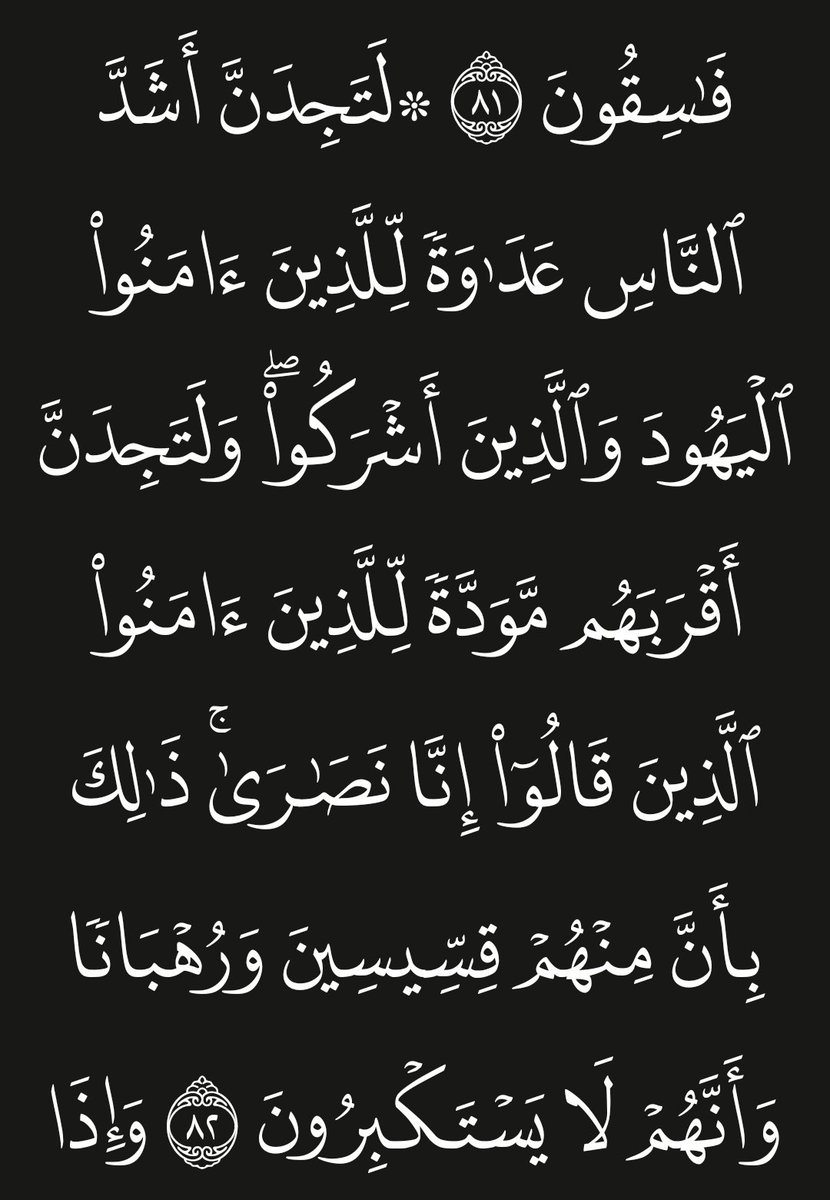 فَٰسِقُونَ ٨١ ۞لَتَجِدَنَّ أَشَدَّ
ٱلنَّاسِ عَدَٰوَةٗ لِّلَّذِينَ ءَامَنُواْ
ٱلۡيَهُودَ وَٱلَّذِينَ أَشۡرَكُواْۖ وَلَتَجِدَنَّ
أَقۡرَبَهُم مَّوَدَّةٗ لِّلَّذِينَ ءَامَنُواْ
ٱلَّذِينَ قَالُوٓاْ إِنَّا نَصَٰرَىٰۚ ذَٰلِكَ
بِأَنَّ مِنۡهُمۡ قِسِّيسِينَ وَرُهۡبَانٗا
وَأَنَّهُمۡ لَا يَسۡتَكۡبِرُونَ ٨٢ وَإِذَا